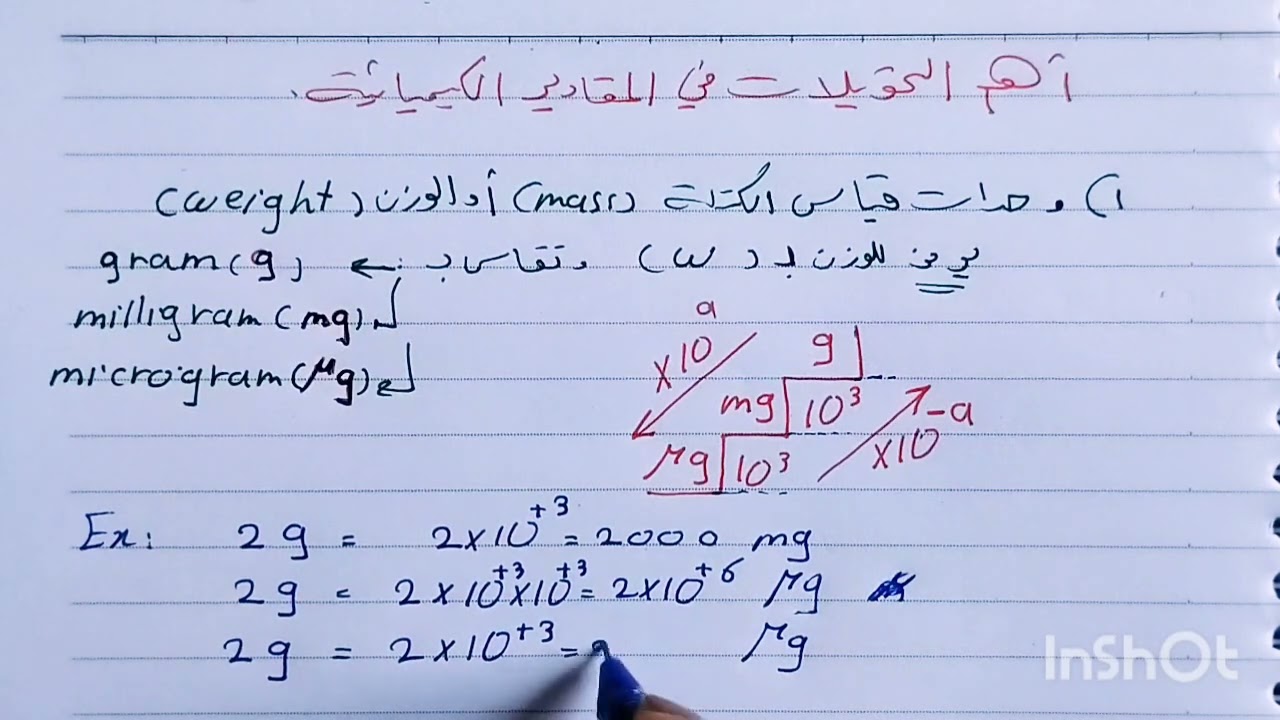 أهم التحويلات في المقادير الكيميائية.
1) وحدات قياس الكتلة (mass) أو الوزن (weight)
يرمز للوزن بـ (w) وتقاس بـ: ← gram(g)
milligram (mg)
microgram (μg)
a
×10
g
mg 10³
-a
×10
μg 10³
Ex: 2g = 2×10⁺³ = 2000 mg
2g = 2×10⁺³×10⁺³ = 2×10⁺⁶ μg
2g = 2×10⁺³ = μg
InShOt